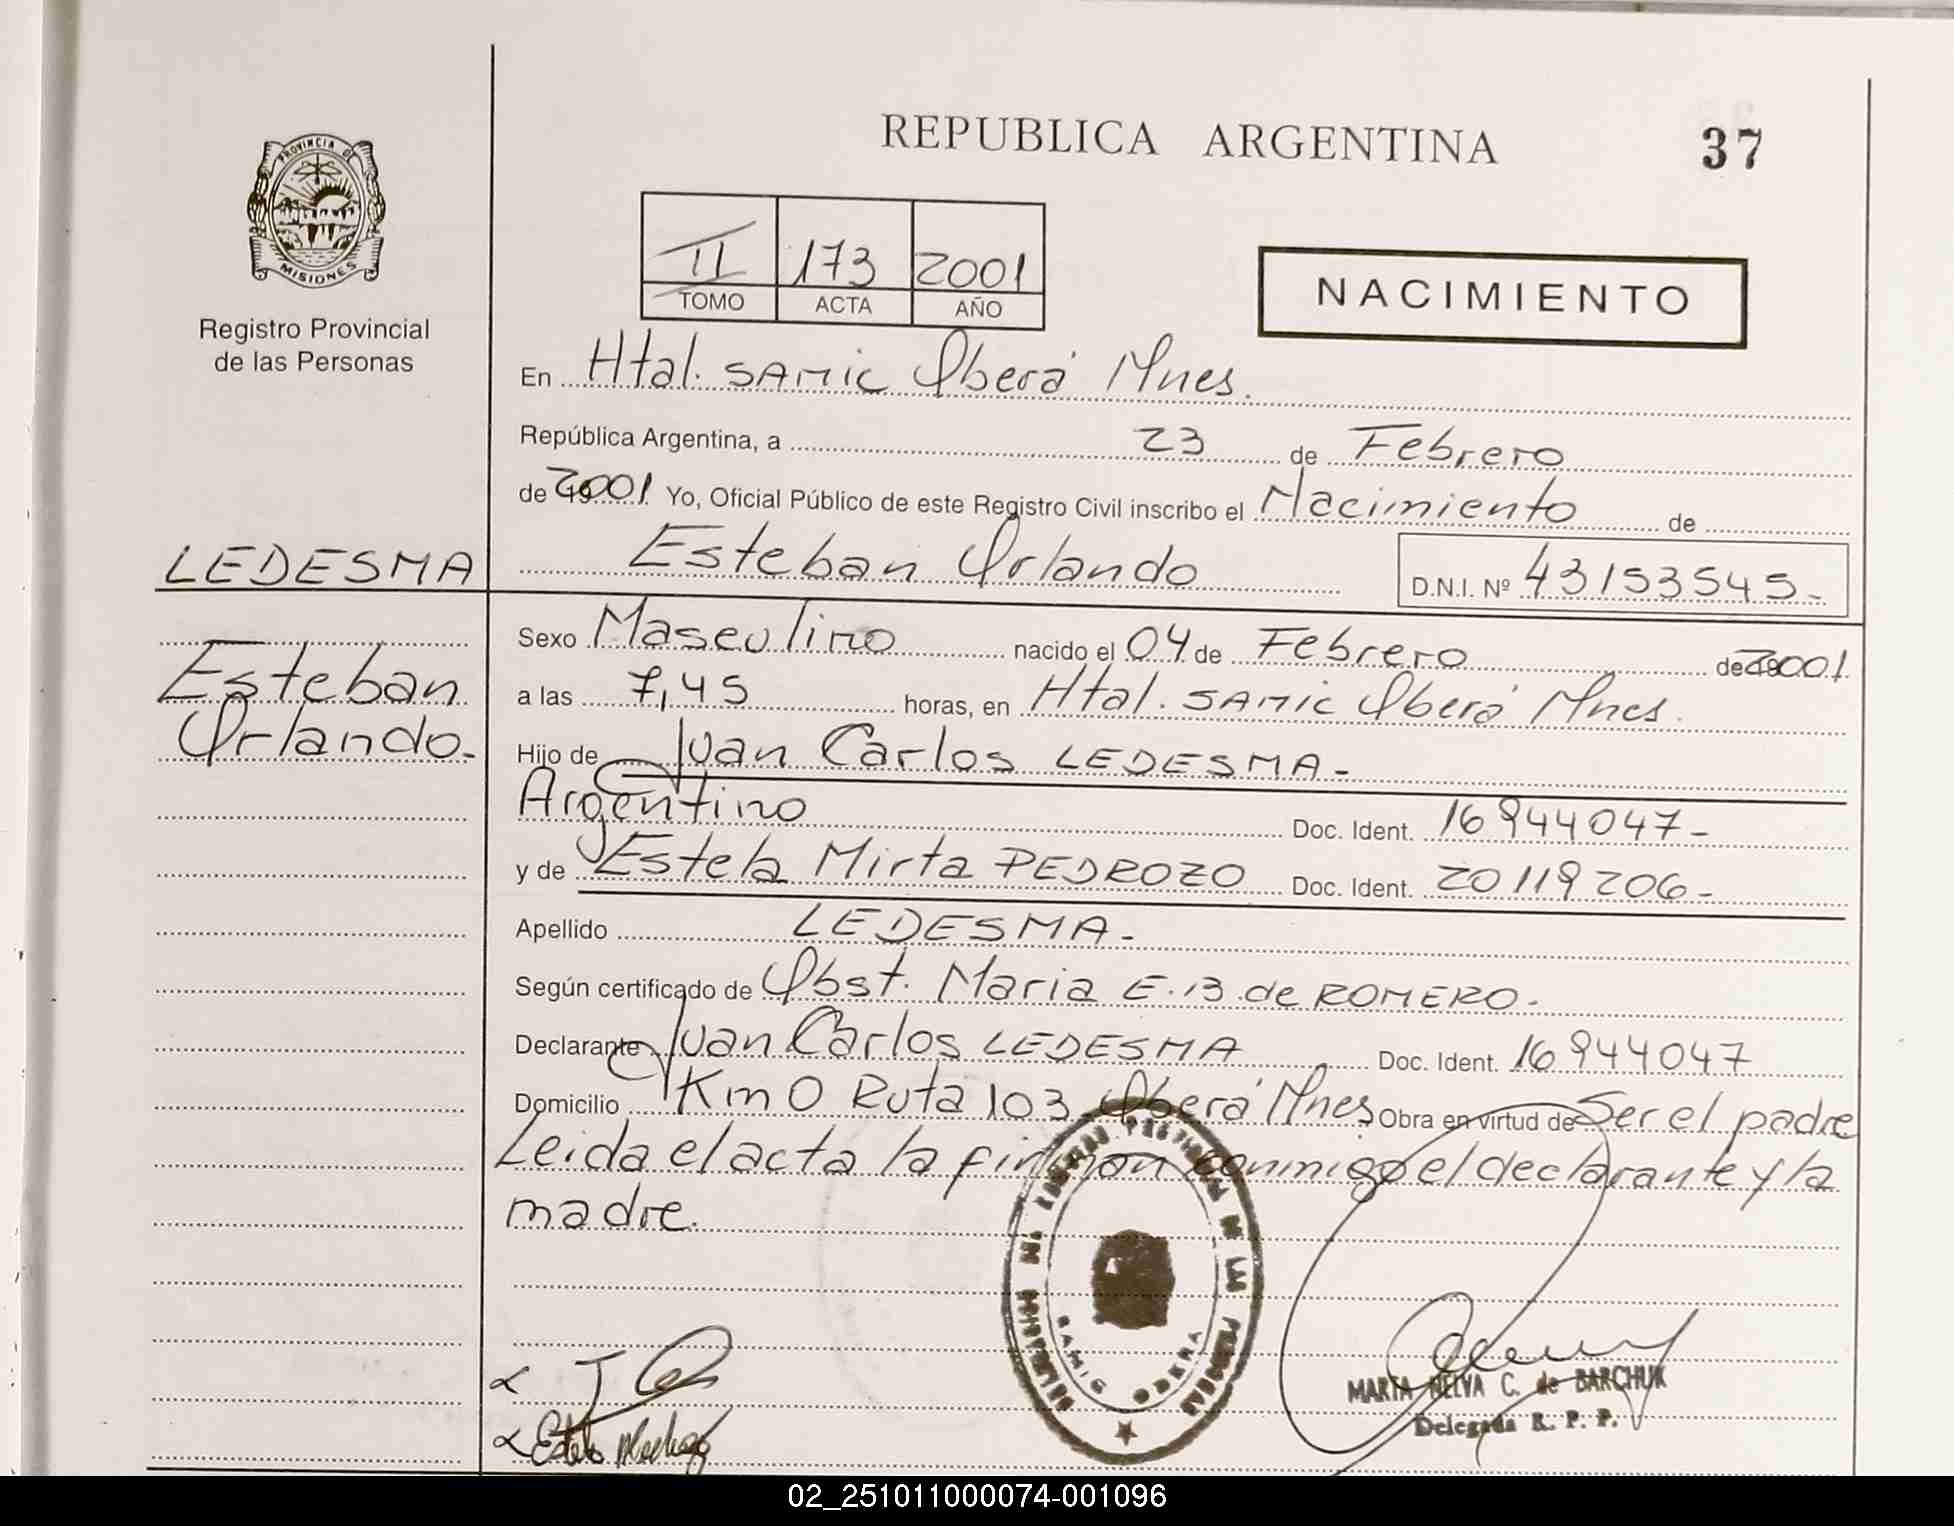 REPUBLICA ARGENTINA
37
PROVINCIA DE
MISIONES
Registro Provincial
de las Personas
II 173 2001
TOMO ACTA AÑO
NACIMIENTO
En Htal. SAMIC Oberá Mnes.
República Argentina, a 23 de Febrero
de 2001 Yo, Oficial Público de este Registro Civil inscribo el Nacimiento de
LEDESMA
Esteban Orlando D.N.I. Nº 43153545-
Esteban
Orlando.-
Sexo Masculino nacido el 04 de Febrero de 2001.
a las 7,45 horas, en Htal. SAMIC Oberá Mnes.
Hijo de Juan Carlos LEDESMA-
Argentino Doc. Ident. 16944047-
y de Estela Mirta PEDROZO Doc. Ident. 20119206-
Apellido LEDESMA.-
Según certificado de Obst. Maria E.B. de ROMERO.-
Declarante Juan Carlos LEDESMA Doc. Ident. 16944047
Domicilio Km 0 Ruta 103 Oberá Mnes Obra en virtud de Ser el padre
Leida el acta la firman conmigo el declarante y la
madre.
SAMIC OBERA
MARTA NELVA C. de BARCHUK
Delegada R. P. P.
02_251011000074-001096